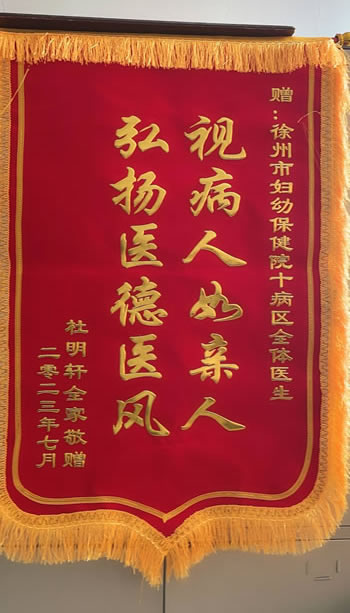 赠：徐州市妇幼保健院十病区全体医生
视病人如亲人
弘扬医德医风
杜明轩全家敬赠
二零二三年七月